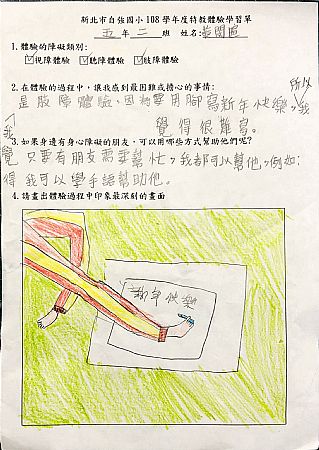 新北市自強國小108學年度特教體驗學習單
五年二班 姓名:
1.體驗的障礙類別:
☑視障體驗 ☑聽障體驗 ☑肢障體驗
2.在體驗的過程中,讓我感到最困難或擔心的事情:
是肢障體驗、因為要用腳寫新年快樂,所以我
覺得很難寫。
3.如果身邊有身心障礙的朋友,可以用哪些方式幫助他們呢?
我覺得只要有朋友需要幫忙,我都可以幫他,例如:
我可以學手語幫助他。
4.請畫出體驗過程中印象最深刻的畫面
新年快樂